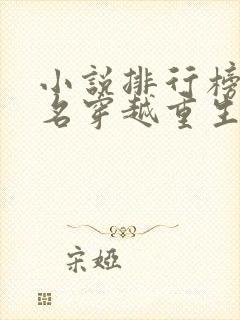 小説排行榜
名穿越重生
宋婭